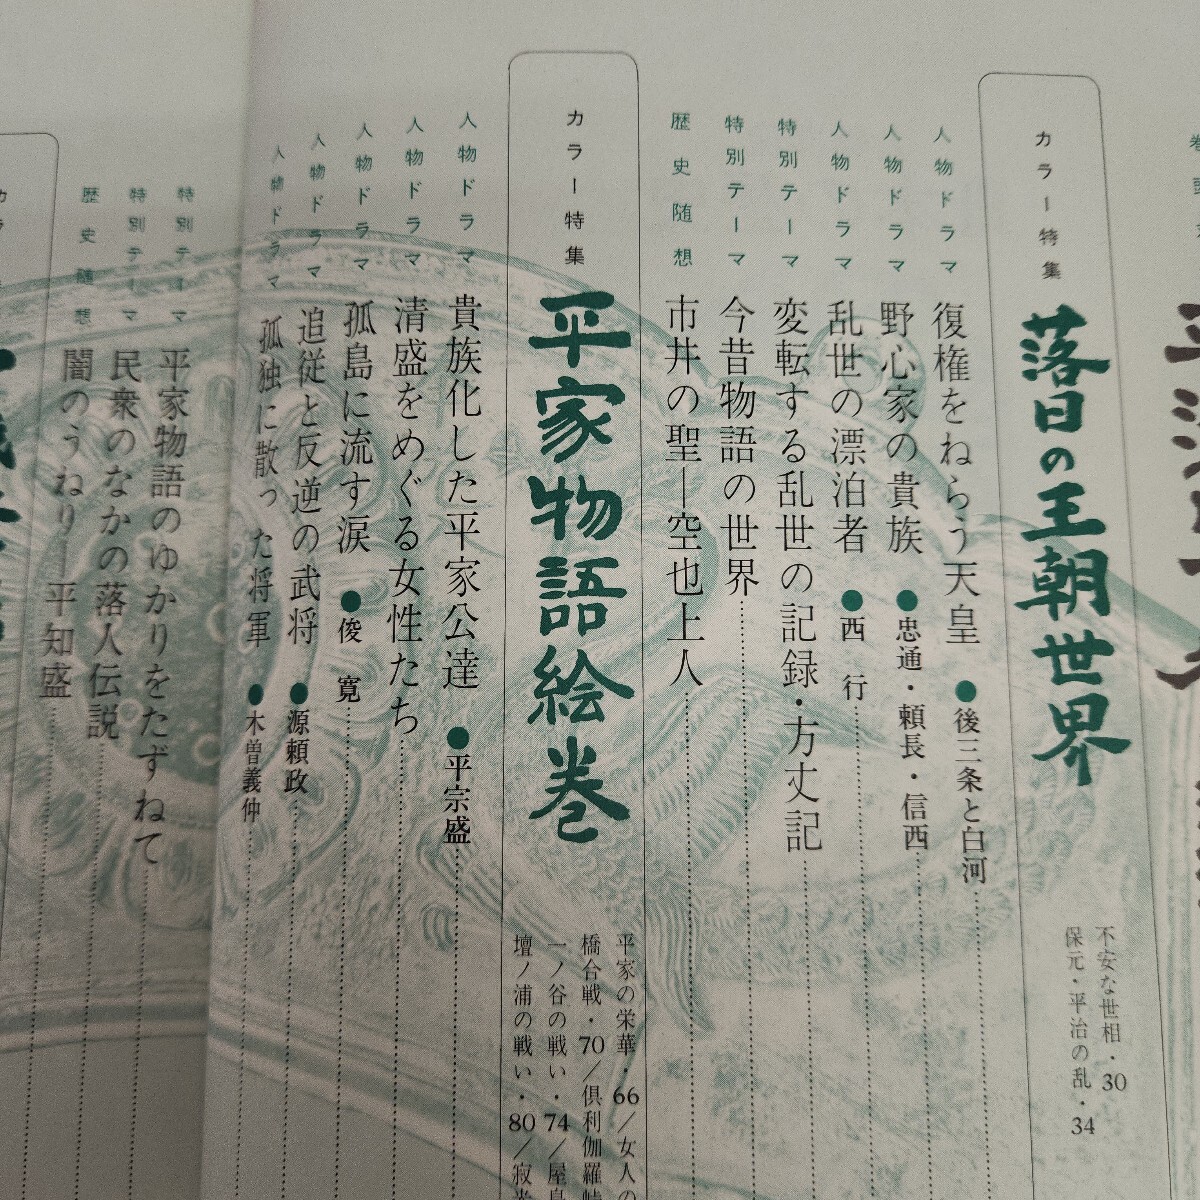 カラー特集
落日の王朝世界
不安な世相・30
保元・平治の乱・34
人物ドラマ
復権をねらう天皇 ●後三条と白河
人物ドラマ
野心家の貴族 ●忠通・頼長・信西
人物ドラマ
乱世の漂泊者 ●西 行
特別テーマ
変転する乱世の記録・方丈記
特別テーマ
今昔物語の世界
歴史随想
市井の聖―空也上人
カラー特集
平家物語絵巻
平家の栄華・66／女人の
橋合戦・70／倶利伽羅峠
一ノ谷の戦い・74／屋島
壇ノ浦の戦い・80／寂光
人物ドラマ
貴族化した平家公達 ●平宗盛
人物ドラマ
清盛をめぐる女性たち
人物ドラマ
孤島に流す涙 ●俊 寛
人物ドラマ
追従と反逆の武将 ●源頼政
人物ドラマ
孤独に散った将軍 ●木曽義仲
特別テーマ
平家物語のゆかりをたずねて
特別テーマ
民衆のなかの落人伝説
歴史随想
闇のうねり―平知盛
カラ